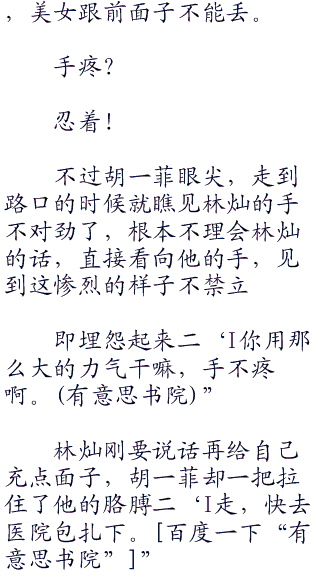 ，美女跟前面子不能丢。
手疼？
忍着！
不过胡一菲眼尖，走到
路口的时候就瞧见林灿的手
不对劲了，根本不理会林灿
的话，直接看向他的手，见
到这惨烈的样子不禁立
即埋怨起来二‘I你用那
么大的力气干嘛，手不疼
啊。(有意思书院)”
林灿刚要说话再给自己
充点面子，胡一菲却一把拉
住了他的胳膊二‘I走，快去
医院包扎下。[百度一下“有
意思书院”]”